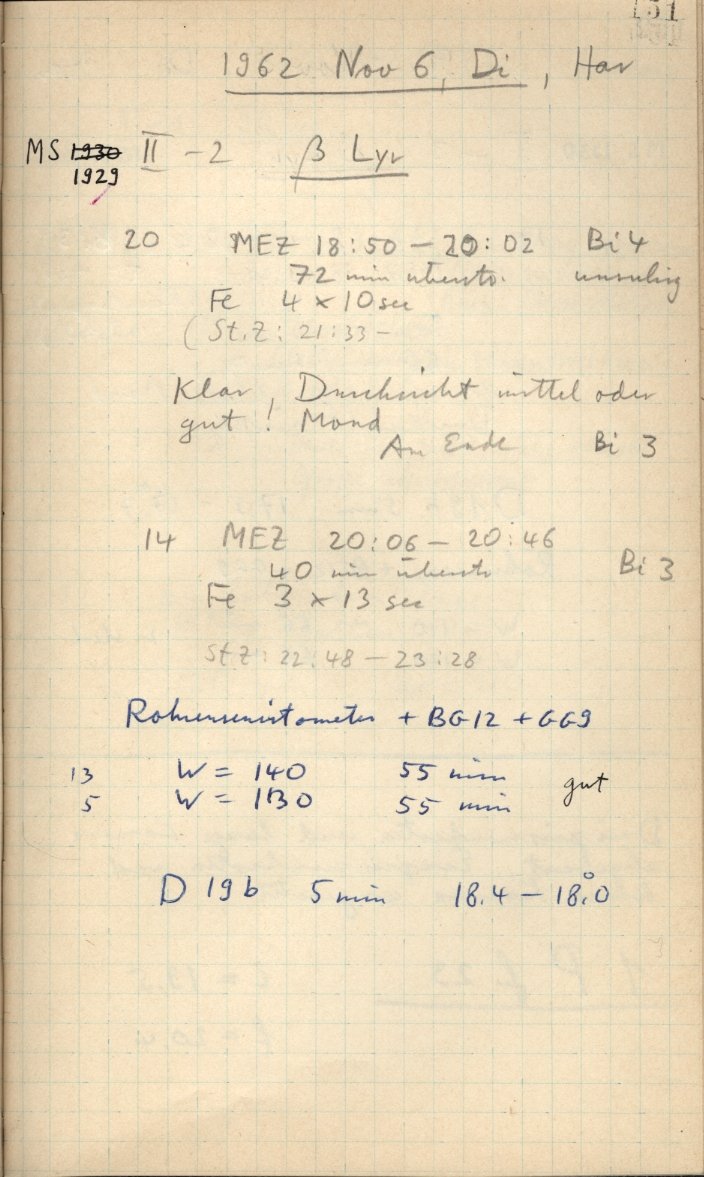 151
1962 Nov 6, Di, Har
MS 1930 II - 2 β Lyr
1929
20 MEZ 18:50 - 20:02 Bi 4
72 min übersto. unruhig
Fe 4 x 10 sec
(St.Z: 21:33 -
Klar, Durchsicht mittel oder
gut! Mond
Am Ende Bi 3
14 MEZ 20:06 - 20:46
40 min übersto Bi 3
Fe 3 x 13 sec
St Z: 22:48 - 23:28
Röhrensensitometer + BG12 + GG9
13 W = 140 55 min gut
5 W = 130 55 min
D 19b 5 min 18.4 - 18.°0